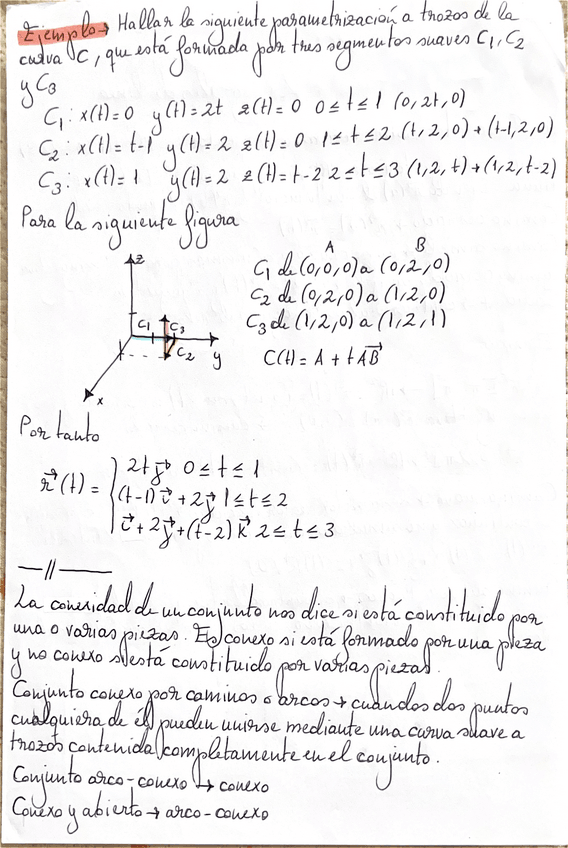 Ejemplo → Hallar la siguiente parametrización a trozos de la
curva C, que está formada por tres segmentos suaves C₁, C₂
y C₃
C₁: x(t)=0 y(t)=2t z(t)=0 0≤t≤1 (0,2t,0)
C₂: x(t)=t-1 y(t)=2 z(t)=0 1≤t≤2 (t,2,0)→(t-1,2,0)
C₃: x(t)=1 y(t)=2 z(t)=t-2 2≤t≤3 (1,2,t)→(1,2,t-2)
Para la siguiente figura
A B
C₁ de (0,0,0) a (0,2,0)
C₂ de (0,2,0) a (1,2,0)
C₃ de (1,2,0) a (1,2,1)
C(t) = A + t AB⃗
z
C₁ C₃
C₂ y
x
Por tanto
r⃗(t) = { 2t j⃗ 0≤t≤1
(t-1) i⃗ + 2 j⃗ 1≤t≤2
i⃗ + 2 j⃗ + (t-2) k⃗ 2≤t≤3
—//——
La conexidad de un conjunto nos dice si está constituido por
una o varias piezas. Es conexo si está formado por una pieza
y no conexo si está constituido por varias piezas.
Conjunto conexo por caminos o arcos → cuando dos puntos
cualquiera de él pueden unirse mediante una curva suave a
trozos contenida completamente en el conjunto.
Conjunto arco-conexo → conexo
Conexo y abierto → arco-conexo